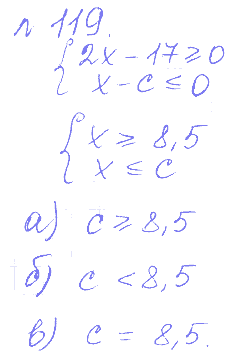 л 119.
{ 2x - 17 ≥ 0
x - c ≤ 0
{ x ≥ 8,5
x ≤ c
а) c ≥ 8,5
б) c < 8,5
в) c = 8,5.